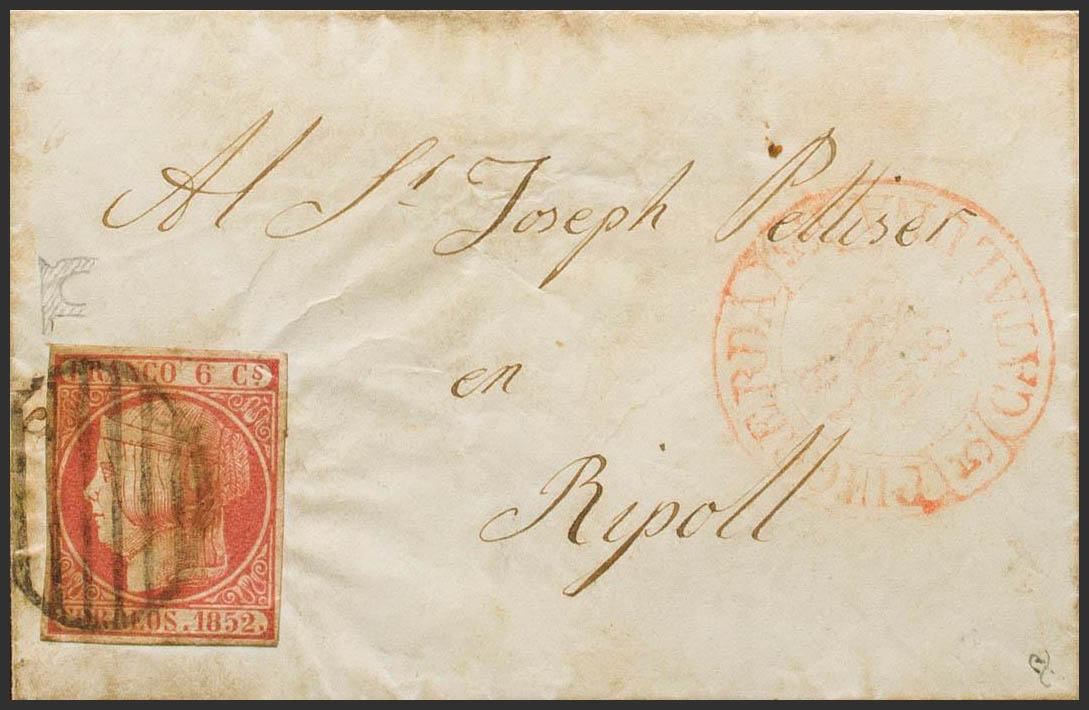 Al Sr Joseph Pelliser
en
Ripoll
FRANCO 6 CS
CORREOS . 1852 .
CATALUÑA